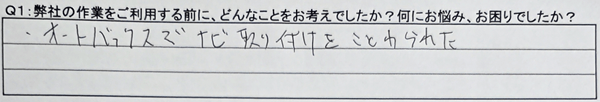 Q1:弊社の作業をご利用する前に、どんなことをお考えでしたか?何にお悩み、お困りでしたか?
・オートバックスでナビ取り付けをことわられた